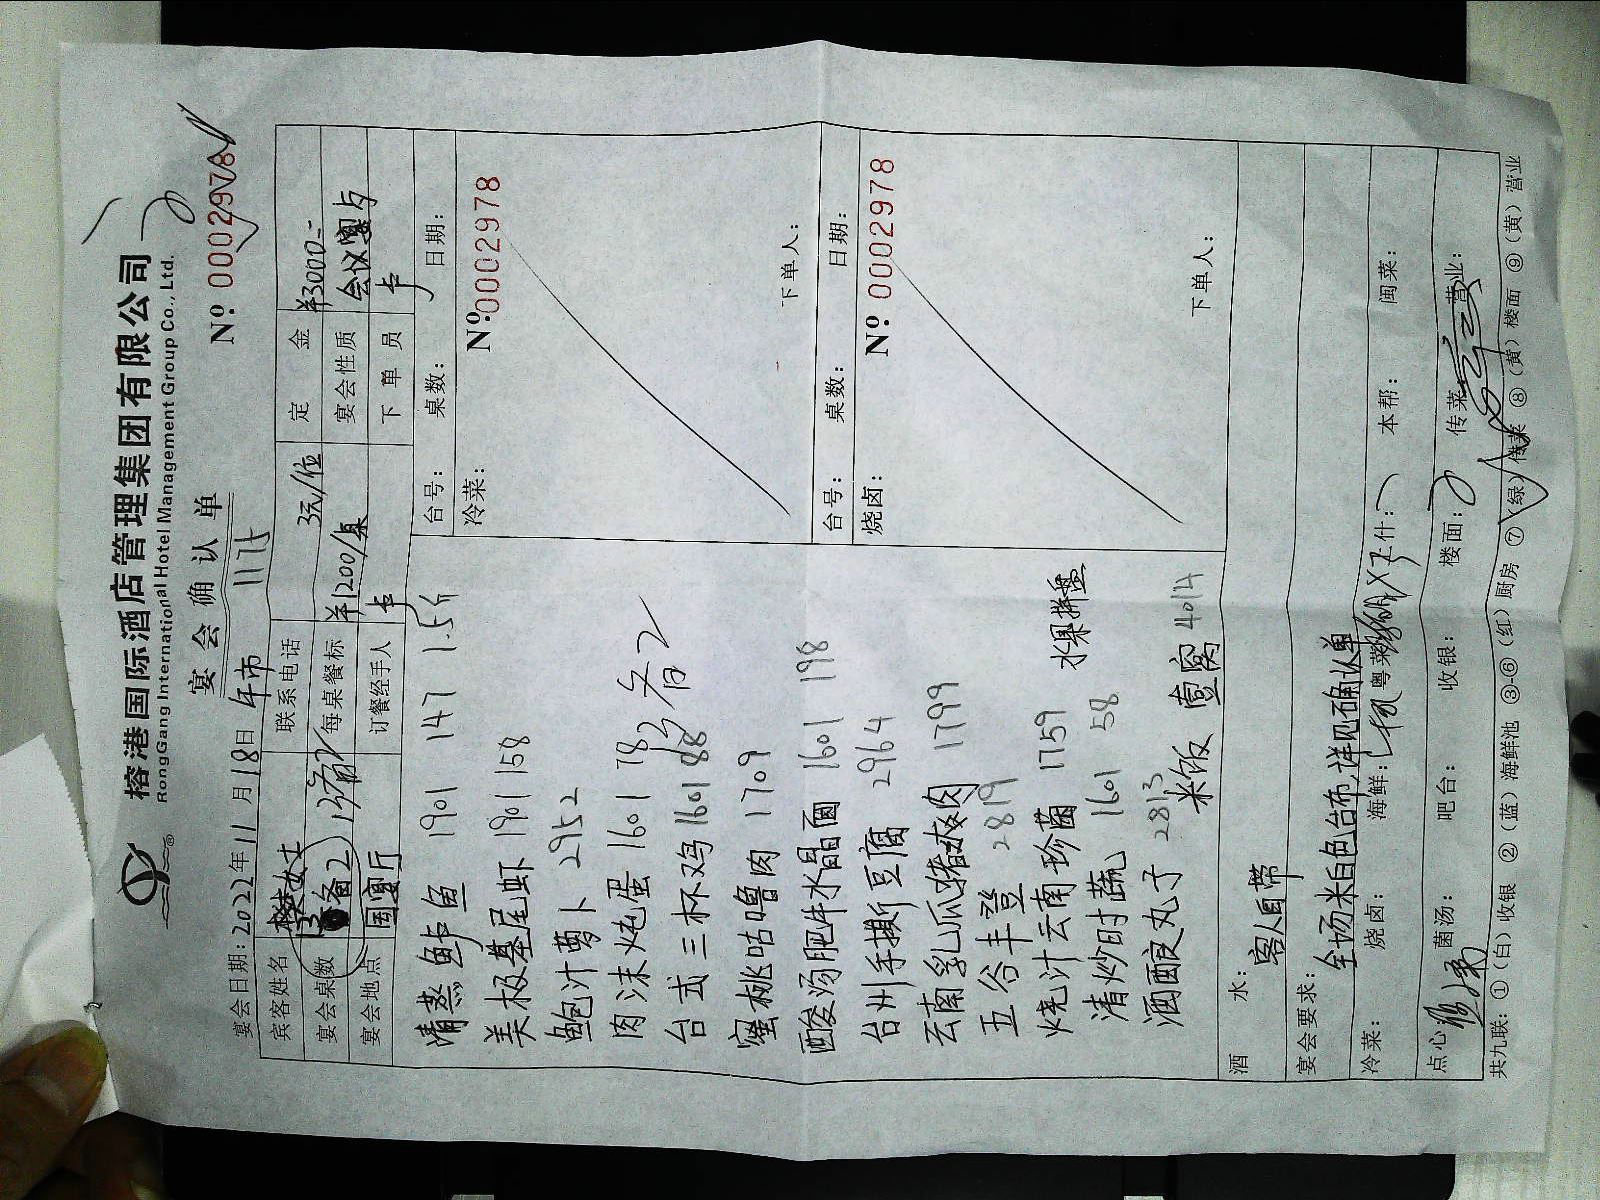 榕港国际酒店管理集团有限公司
RongGang International Hotel Management Group Co., Ltd.
宴会确认单
Nº 0002978
宴会日期：2022年11月18日 午市
宾客姓名 樊女士 联系电话 3元/位 定金 ¥3000-
宴会桌数 备2 每桌餐标 ¥1200/桌 宴会性质 会议宴
宴会地点 国宴厅 订餐经手人 卡 下单员 卡
台号： 桌数： 日期：
冷菜： Nº 0002978
下单人：
台号： 桌数： 日期：
烧卤： Nº 0002978
下单人：
清蒸鲈鱼 1901 147 1.5斤
美极基尾虾 1901 158
鲍汁萝卜 2952
肉沫炖蛋 1601 78
台式三杯鸡 1601 88
备2
蜜桃咕噜肉 1709
酸汤肥牛水晶面 1601 198
台州手撕豆腐 2964
云南乳瓜猪爽肉 1799
五谷丰登 2819
烧汁云南珍菌 1759
清炒时蔬 1601 58
水果拼盘
酒酿丸子 2813
米饭 壹窝 4014
酒水： 客人自带
宴会要求： 全场米白色台布，详见确认单
冷菜： 烧卤： 海鲜： 粤菜： 上什： 本帮： 闽菜：
点心： 菌汤： 吧台： 收银： 楼面： 传菜： 营业：
共九联：①（白）收银 ②（蓝）海鲜池 ③-⑥（红）厨房 ⑦（绿）传菜 ⑧（黄）楼面 ⑨（黄）营业